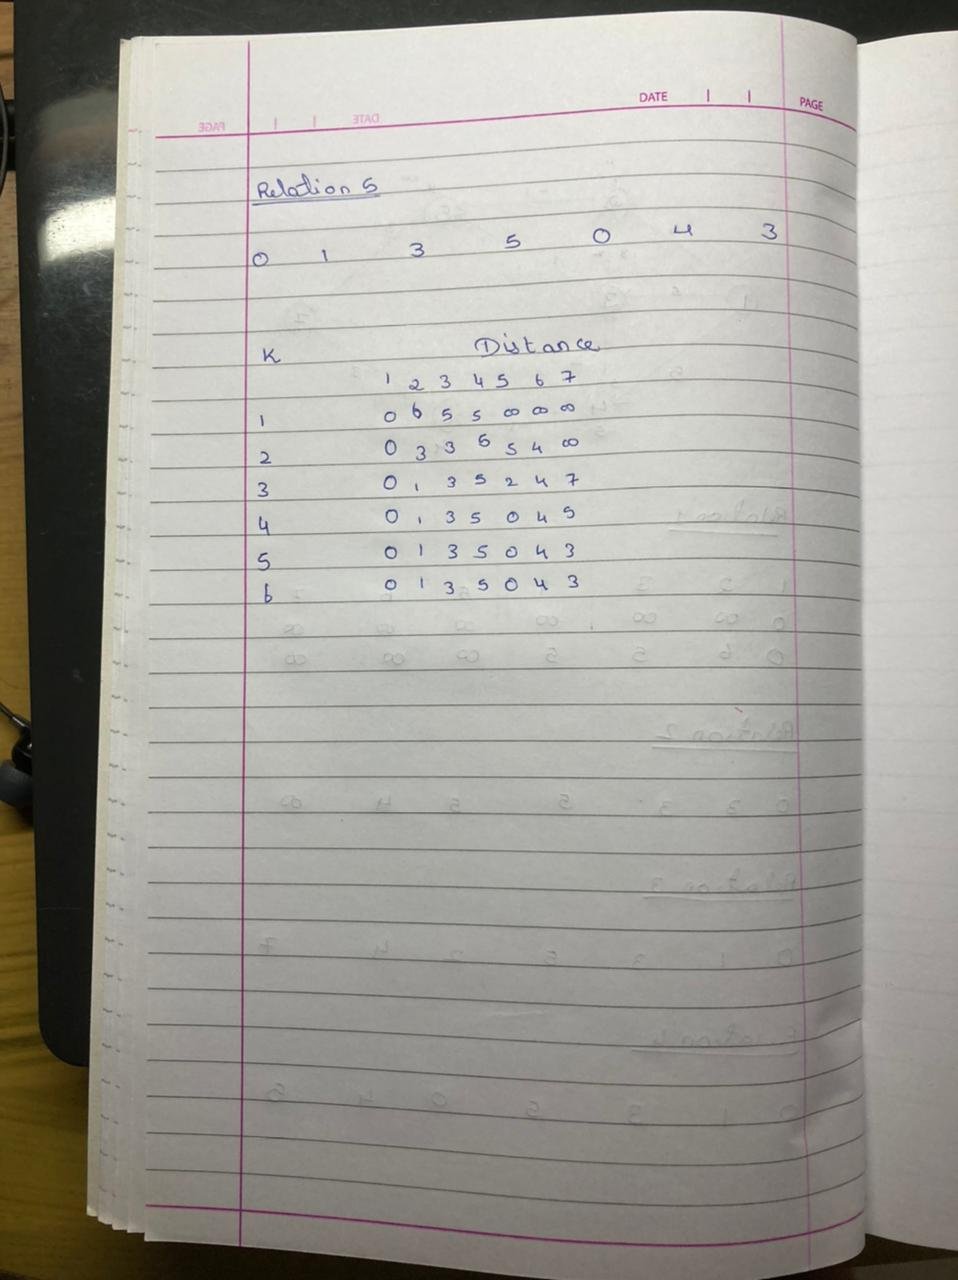 DATE | | PAGE
Relation 5
0 1 3 5 0 4 3
K Distance
1 2 3 4 5 6 7
1 0 6 5 5 ∞ ∞ ∞
2 0 3 3 5 5 4 ∞
3 0 1 3 5 2 4 7
4 0 1 3 5 0 4 5
5 0 1 3 5 0 4 3
6 0 1 3 5 0 4 3